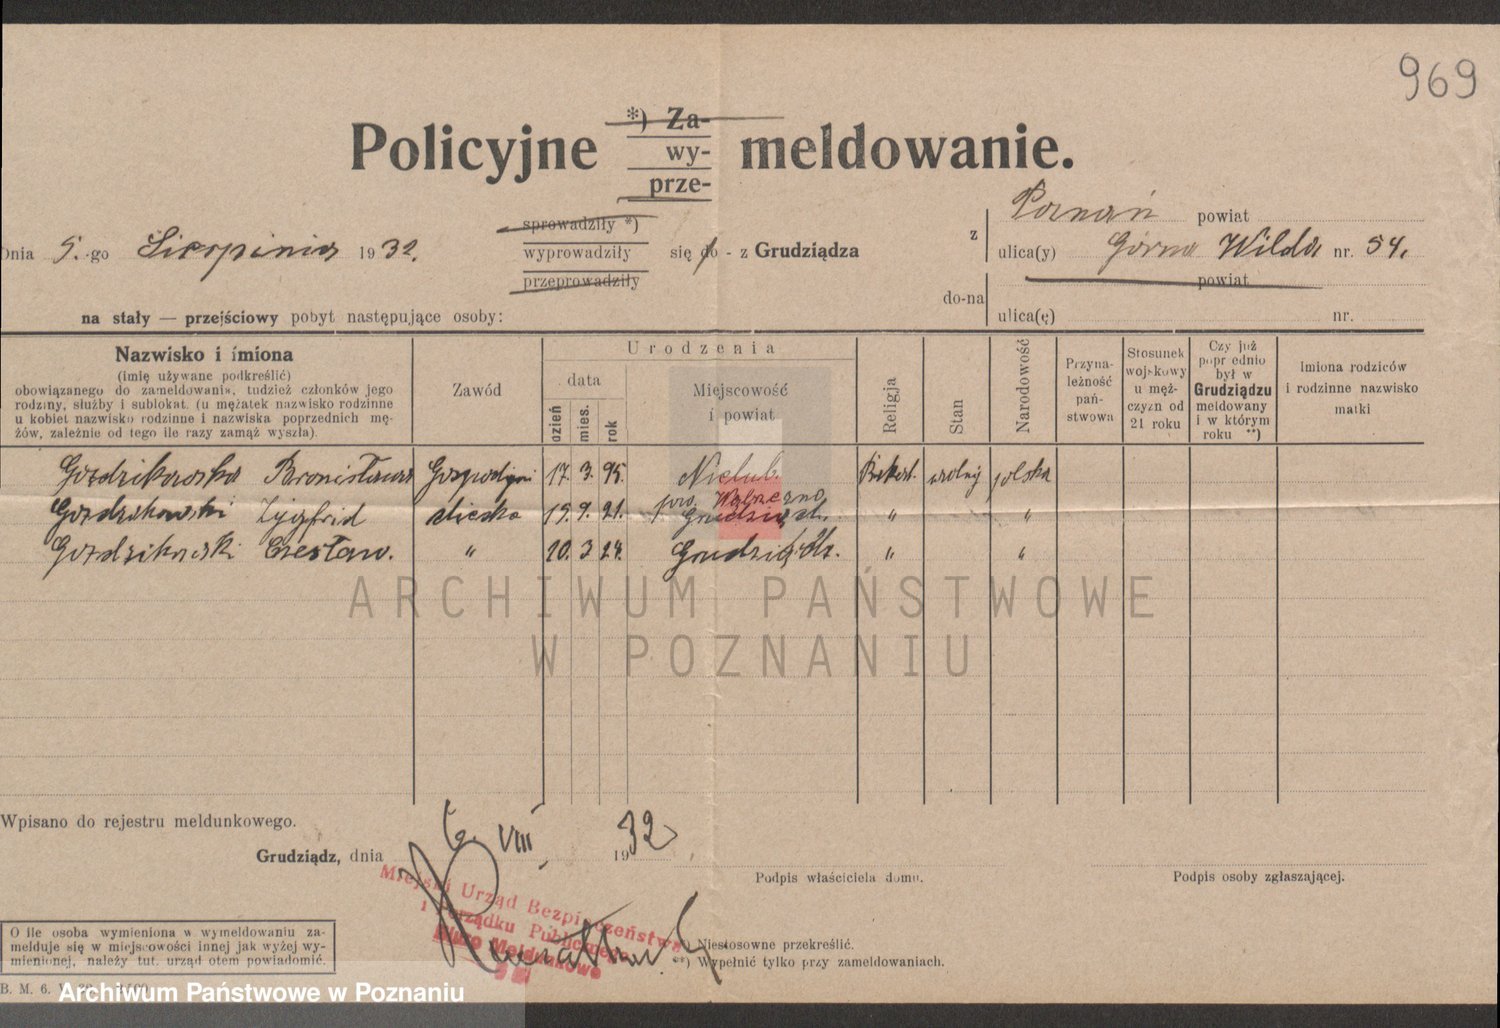 969
Policyjne *) Za- wy- prze- meldowanie.
Dnia 5.-go Sierpinia 1932. sprowadziły *) wyprowadziły przeprowadziły się do - z Grudziądza
z Poznań powiat
ulica(y) Górna Wilda nr. 54.
do-na powiat
ulica(ę) nr.
na stały — przejściowy pobyt następujące osoby:
Nazwisko i imiona
(imię używane podkreślić)
obowiązanego do zameldowania, tudzież członków jego
rodziny, służby i sublokat. (u mężatek nazwisko rodzinne
u kobiet nazwisko rodzinne i nazwiska poprzednich mę-
żów, zależnie od tego ile razy zamąż wyszła).
Zawód
Urodzenia
data
dzień
mies.
rok
Miejscowość
i powiat
Religja
Stan
Narodowość
Przyna-
leżność
pań-
stwowa
Stosunek
wojskowy
u męż-
czyzn od
21 roku
Czy już
poprzednio
był w
Grudziądzu
meldowany
i w którym
roku **)
Imiona rodziców
i rodzinne nazwisko
matki
Gozdzikowska Bronisława Gospodyni 17. 3. 95. Nielub wolny polska
pow. Wąbrzezno
Gozdzikowski Zygfrid 19. 9. 21. Grudziądz. " "
Gozdzikowski Czesław. " 20. 3 24. Grudziądz. " "
ARCHIWUM PAŃSTWOWE
W POZNANIU
Wpisano do rejestru meldunkowego.
Grudziądz, dnia 6. VIII. 1932
Podpis właściciela domu.
Podpis osoby zgłaszającej.
Miejski Urząd Bezpieczeństwa
i Porządku Publicznego
Biuro Meldunkowe
O ile osoba wymieniona w wymeldowaniu za-
melduje się w miejscowości innej jak wyżej wy-
mienionej, należy tut. urząd otem powiadomić.
*) Niestosowne przekreślić.
**) Wypełnić tylko przy zameldowaniach.
B. M. 6.
Archiwum Państwowe w Poznaniu